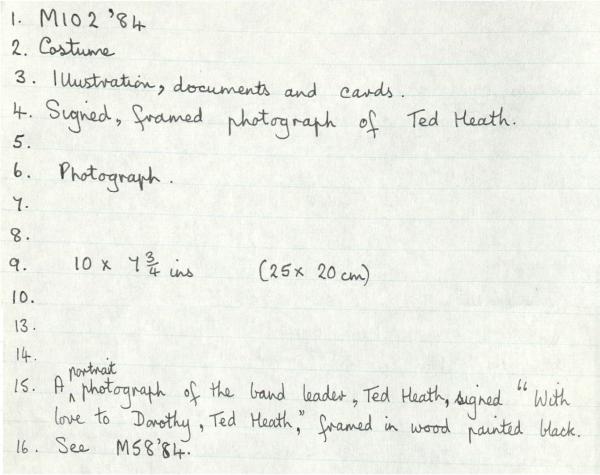 1. M102 '84
2. Costume
3. Illustration, documents and cards.
4. Signed, framed photograph of Ted Heath.
5.
6. Photograph.
7.
8.
9. 10 x 7 3/4 ins (25 x 20 cm)
10.
13.
14.
15. A portrait photograph of the band leader, Ted Heath, signed "With
love to Dorothy, Ted Heath," framed in wood painted black.
16. See M58'84.